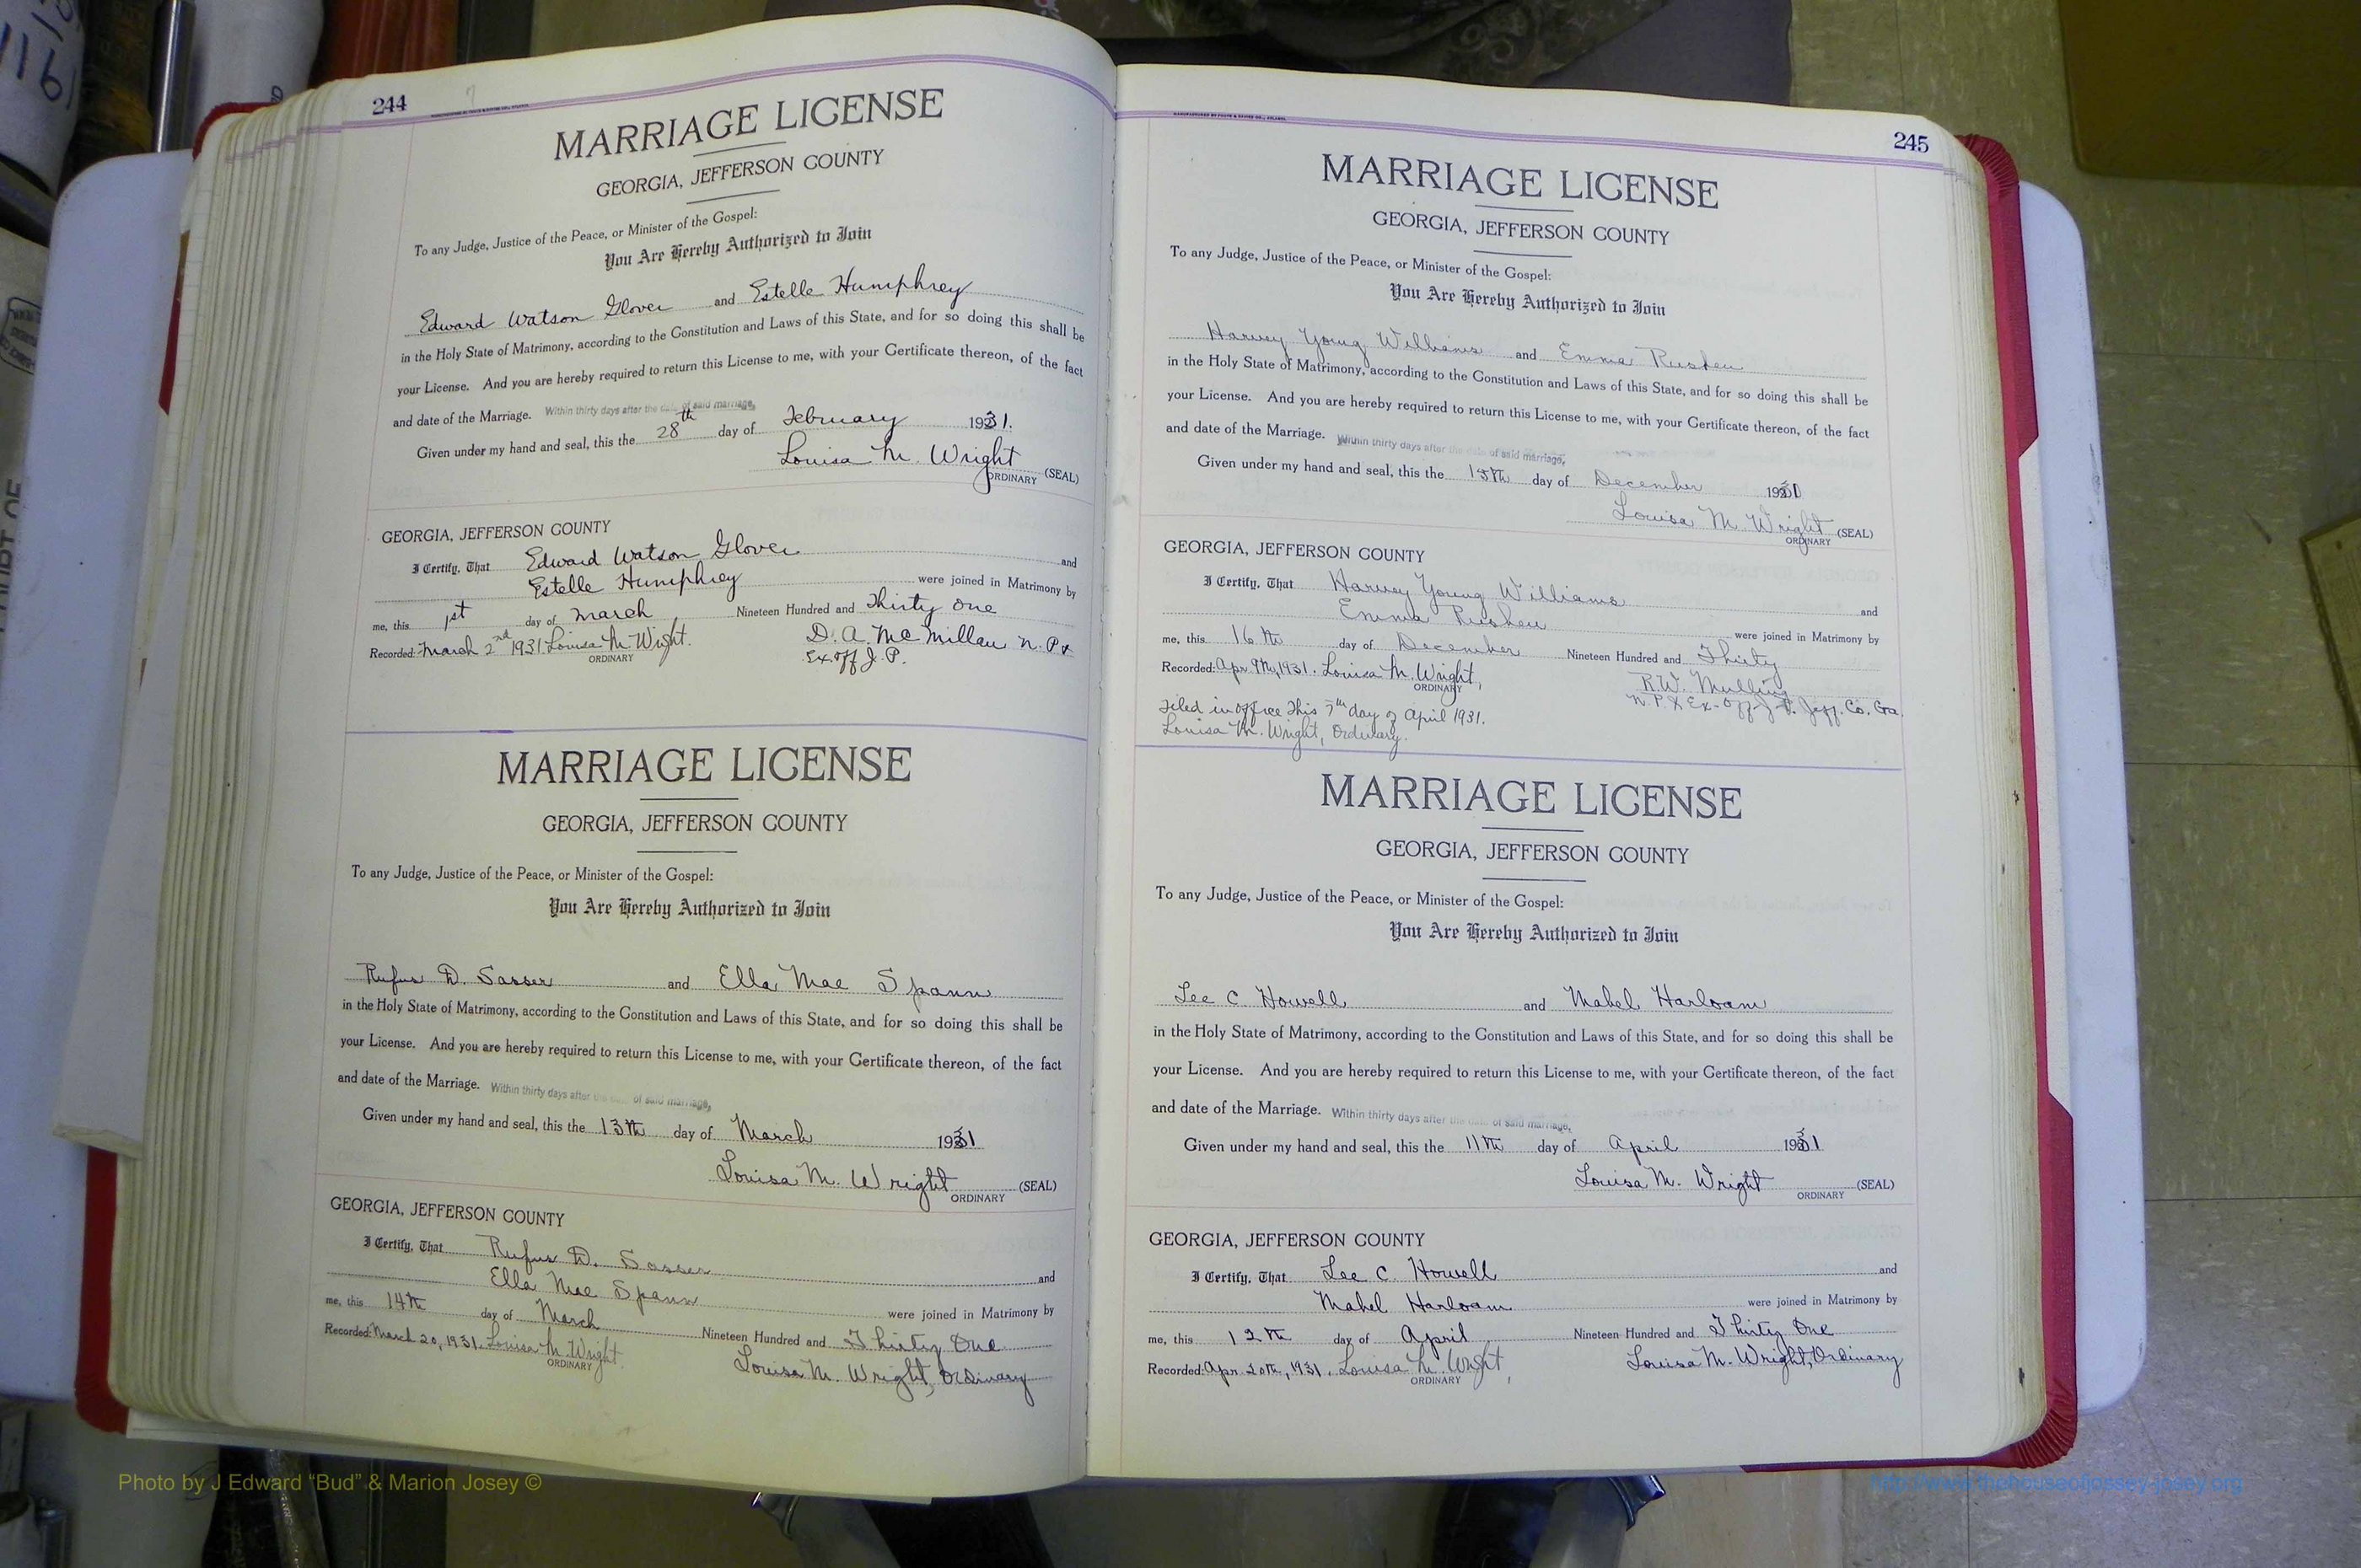 244
MARRIAGE LICENSE
GEORGIA, JEFFERSON COUNTY
To any Judge, Justice of the Peace, or Minister of the Gospel:
You Are Hereby Authorized to Join
Edward Watson Glover and Estelle Humphrey
in the Holy State of Matrimony, according to the Constitution and Laws of this State, and for so doing this shall be
your License. And you are hereby required to return this License to me, with your Certificate thereon, of the fact
and date of the Marriage. Within thirty days after the date of said marriage,
Given under my hand and seal, this the 28th day of February 1931.
Louisa M. Wright (SEAL)
ORDINARY
GEORGIA, JEFFERSON COUNTY
I Certify, That Edward Watson Glover and
Estelle Humphrey were joined in Matrimony by
me, this 1st day of March Nineteen Hundred and Thirty One
Recorded: March 2nd 1931 Louisa M. Wright. D. A. McMillan N. P. &
ORDINARY Ex off J. P.
MARRIAGE LICENSE
GEORGIA, JEFFERSON COUNTY
To any Judge, Justice of the Peace, or Minister of the Gospel:
You Are Hereby Authorized to Join
Rufus D. Sasser and Ella Mae Spann
in the Holy State of Matrimony, according to the Constitution and Laws of this State, and for so doing this shall be
your License. And you are hereby required to return this License to me, with your Certificate thereon, of the fact
and date of the Marriage. Within thirty days after the date of said marriage,
Given under my hand and seal, this the 13th day of March 1931
Louisa M. Wright (SEAL)
ORDINARY
GEORGIA, JEFFERSON COUNTY
I Certify, That Rufus D. Sasser and
Ella Mae Spann were joined in Matrimony by
me, this 14th day of March Nineteen Hundred and Thirty One
Recorded: March 20, 1931. Louisa M. Wright. Louisa M. Wright, Ordinary
ORDINARY
245
MARRIAGE LICENSE
GEORGIA, JEFFERSON COUNTY
To any Judge, Justice of the Peace, or Minister of the Gospel:
You Are Hereby Authorized to Join
Harvey Young Williams and Emma
in the Holy State of Matrimony, according to the Constitution and Laws of this State, and for so doing this shall be
your License. And you are hereby required to return this License to me, with your Certificate thereon, of the fact
and date of the Marriage. Within thirty days after the date of said marriage,
Given under my hand and seal, this the 15th day of December
Louisa M. Wright (SEAL)
ORDINARY
GEORGIA, JEFFERSON COUNTY
I Certify, That Harvey Young Williams and
Emma were joined in Matrimony by
me, this 16th day of December Nineteen Hundred and Thirty
Recorded: Apr 9th, 1931. Louisa M. Wright, R. W. Mulling
ORDINARY N. P. & Ex-off J. P. Jeff. Co. Ga.
Filed in office this 7th day of April 1931.
Louisa M. Wright, Ordinary.
MARRIAGE LICENSE
GEORGIA, JEFFERSON COUNTY
To any Judge, Justice of the Peace, or Minister of the Gospel:
You Are Hereby Authorized to Join
Lee C Howell and Mabel Harloam
in the Holy State of Matrimony, according to the Constitution and Laws of this State, and for so doing this shall be
your License. And you are hereby required to return this License to me, with your Certificate thereon, of the fact
and date of the Marriage. Within thirty days after the date of said marriage,
Given under my hand and seal, this the 11th day of April 1931
Louisa M. Wright (SEAL)
ORDINARY
GEORGIA, JEFFERSON COUNTY
I Certify, That Lee C. Howell and
Mabel Harloam were joined in Matrimony by
me, this 12th day of April Nineteen Hundred and Thirty One
Recorded: Apr 20th, 1931. Louisa M. Wright, Louisa M. Wright, Ordinary
ORDINARY
Photo by J Edward "Bud" & Marion Josey ©
http://www.thehouseofjossey-josey.org